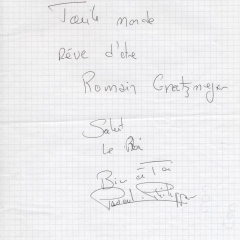 Tout le monde
Rêve d'être
Romain Gratzmeyer
Salut
le
Bien à Toi
Pascal Philippe